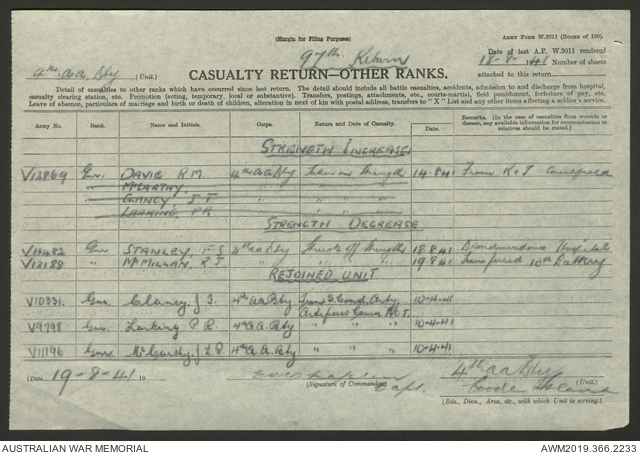 (Margin for Filing Purposes)
ARMY FORM W.3011 (BOOKS OF 100).
97th Return
Date of last A.F. W.3011 rendered
18-8-1941 Number of sheets
4th AA Bty (Unit.)
attached to this return
CASUALTY RETURN—OTHER RANKS.
Detail of casualties to other ranks which have occurred since last return. The detail should include all battle casualties, accidents, admission to and discharge from hospital,
casualty clearing station, etc. Promotion (acting, temporary, local or substantive). Transfers, postings, attachments, etc., courts-martial, field punishment, forfeiture of pay, etc.
Leave of absence, particulars of marriage and birth or death of children, alteration in next of kin with postal address, transfers to "X" List and any other items affecting a soldier's service.
Army No. Rank. Name and Initials. Corps. Nature and Date of Casualty. Date. Remarks. (In the case of casualties from wounds or disease, any available information for communication to relatives should be stated.)
STRENGTH INCREASE
V13869 Gnr. DAVIE R.M. 4th AA Bty Taken on Strength 14.8.41 From R&T Caulfield
" McCARTHY " " "
" CLANCY J T " " "
" LARKING P.R. " " "
STRENGTH DECREASE
V13482 Gnr STANLEY, F S 4th AA Bty Struck off Strength 18.8.41 Hospital
V13188 " McMILLAN, R J " " " 19.8.41 Transferred 10th Battery
REJOINED UNIT
V10331 Gnr. Clancy. J T. 4th A.A. Bty From 3 Coast Arty. 10-4-41
Artificers Course
V9798 Gnr. Larking P R. 4th A.A. Bty " " 10-4-41
V11196 Gnr McCarthy. J L P 4th A.A. Bty " " 10-4-41
(Date) 19-8-41 19
Capt.
(Signature of Commander)
4th AA Bty
Coode Island (Unit.)
(Bde., Divn., Area, etc., with which Unit is serving.)
AUSTRALIAN WAR MEMORIAL
AWM2019.366.2233